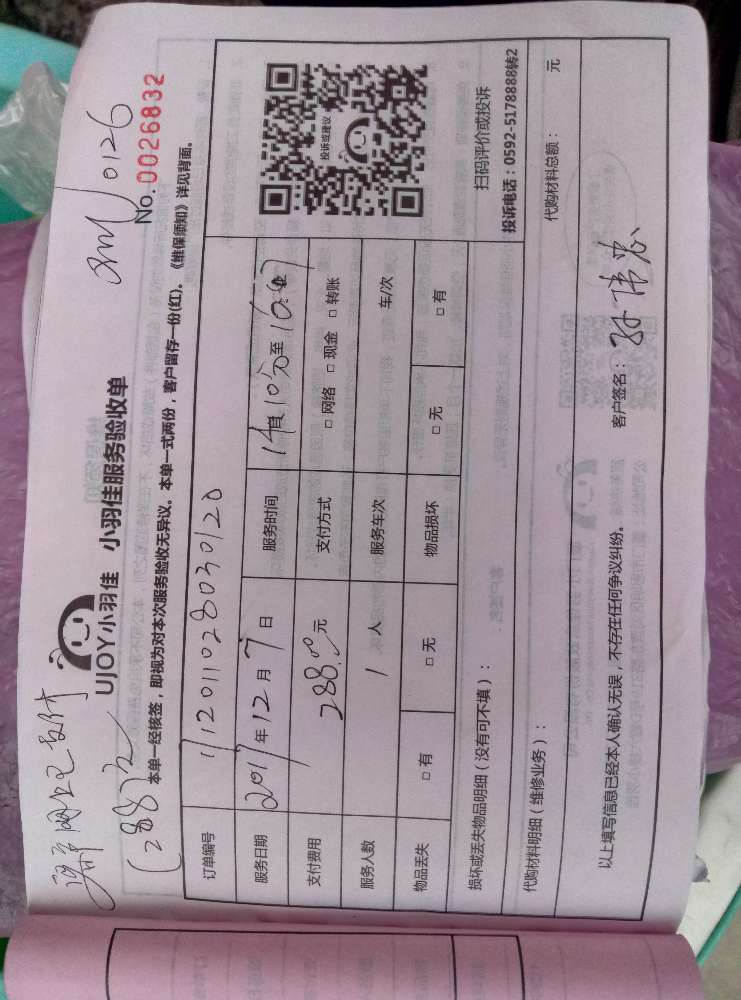 网上已支付
(288元)
0126
UJOY小羽佳 小羽佳服务验收单
No. 0026832
本单一经核签，即视为对本次服务验收无异议。本单一式两份，客户留存一份(红)。《维保须知》详见背面。
订单编号 171201102803 0120
服务日期 2017年12月7日 服务时间 10分至
支付费用 288.00元 支付方式 □ 网络 □ 现金 □ 转账
服务人数 1 人 服务车次 车/次
物品丢失 □ 有 □ 无 物品损坏 □ 无 □ 有
投诉或建议
扫码评价或投诉
投诉电话：0592-5178888转2
损坏或丢失物品明细（没有可不填）：
代购材料明细（维修业务）： 代购材料总额： 元
以上填写信息已经本人确认无误，不存在任何争议纠纷。 客户签名：孙伟忠